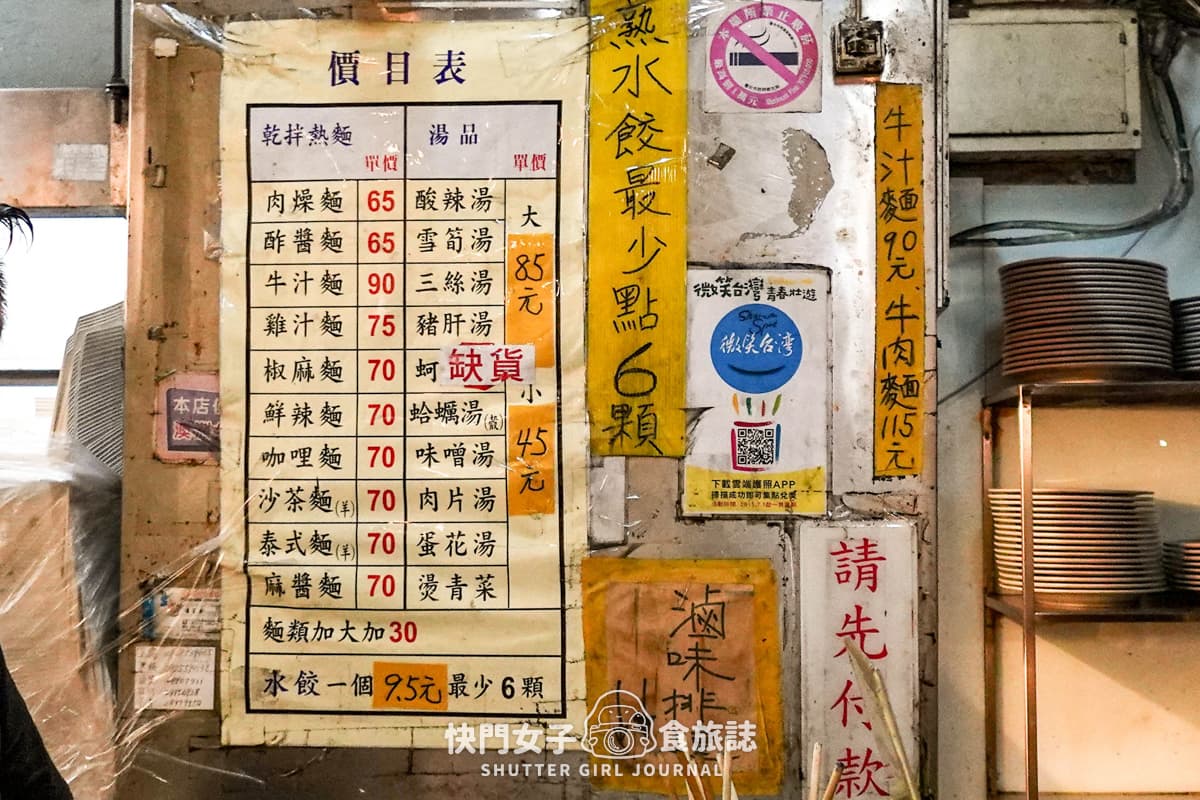 價目表
乾拌熱麵 湯品
單價 單價
肉燥麵 65 酸辣湯
酢醬麵 65 雪筍湯
牛汁麵 90 三絲湯
雞汁麵 75 豬肝湯
椒麻麵 70 蚵 缺貨
鮮辣麵 70 蛤蠣湯(殼)
咖哩麵 70 味噌湯
沙茶麵(羊) 70 肉片湯
泰式麵(羊) 70 蛋花湯
麻醬麵 70 燙青菜
大
85元
小
45元
麵類加大加30
水餃一個9.5元最少6顆
熟水餃最少點6顆
本場所禁止吸菸
微笑台灣 青春壯遊
微笑台灣
下載雲端護照APP
掃描成功即可集點兌獎
牛汁麵90元 牛肉麵115元
滷味
排
請先付款
本店
快門女子 食旅誌
SHUTTER GIRL JOURNAL